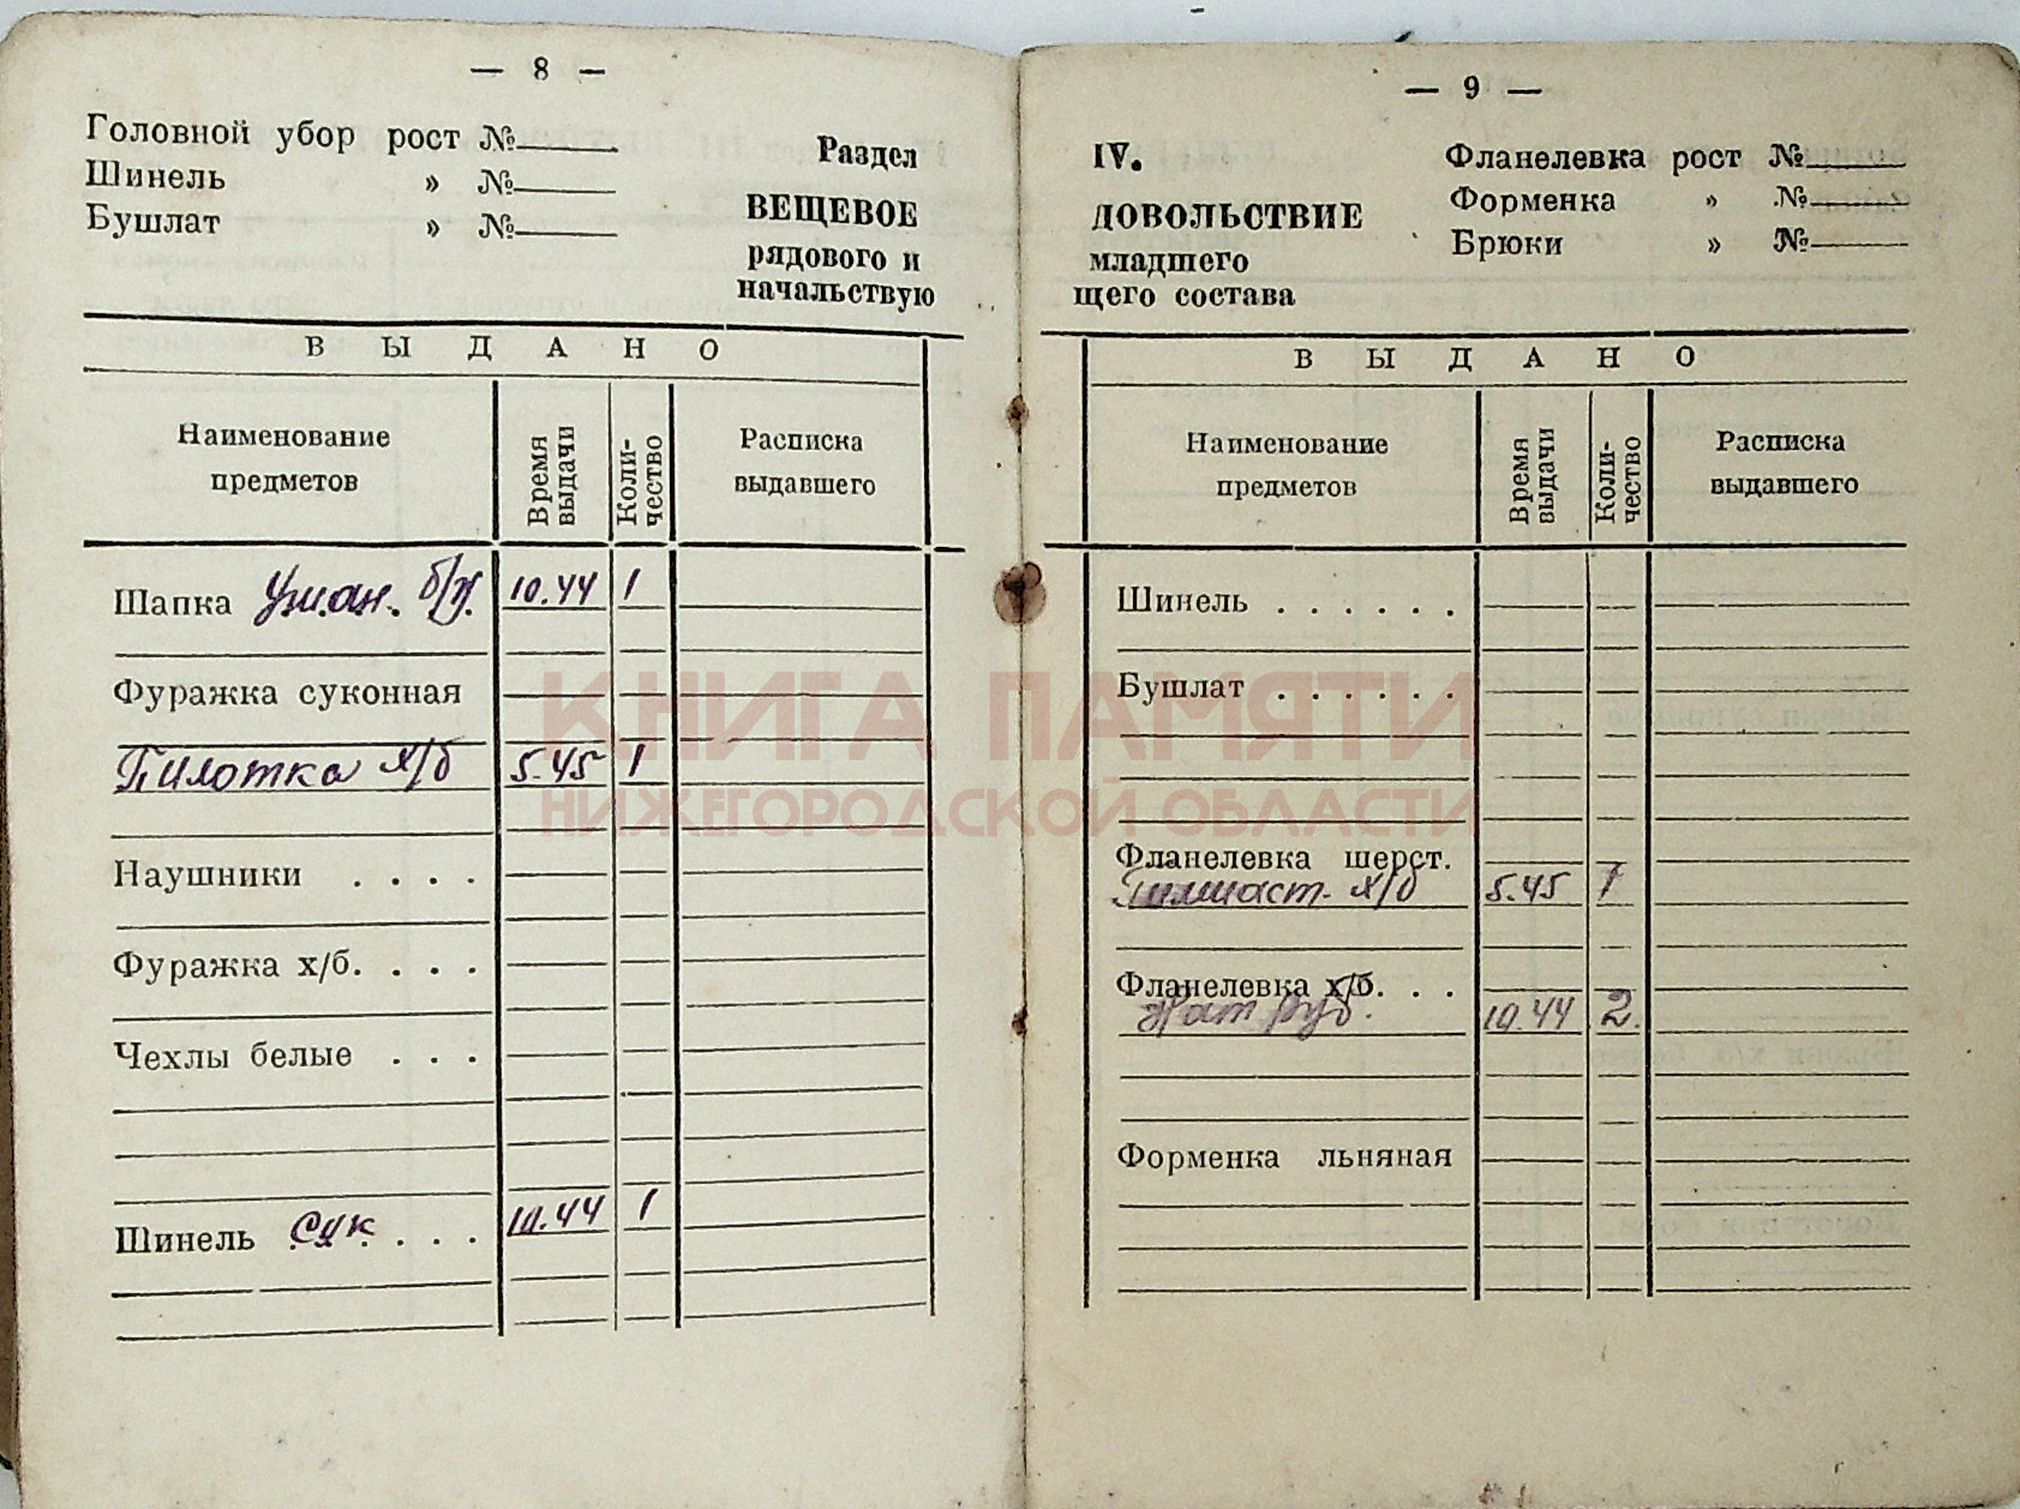 — 8 —
Головной убор рост №
Шинель » №
Бушлат » №
Раздел
ВЕЩЕВОЕ
рядового и
начальствую
ВЫДАНО
Наименование предметов
Время выдачи
Коли-
чество
Расписка выдавшего
Шапка Ушан. 10.44 1
Фуражка суконная
Пилотка х/б 5.45 1
Наушники . . . .
Фуражка х/б. . . .
Чехлы белые . . .
Шинель сук . . . 10.44 1
— 9 —
IV.
ДОВОЛЬСТВИЕ
младшего
щего состава
Фланелевка рост №
Форменка » №
Брюки » №
ВЫДАНО
Наименование предметов
Время выдачи
Коли-
чество
Расписка выдавшего
Шинель . . . . . .
Бушлат . . . . . .
Фланелевка шерст.
Гимнаст. х/б 5.45 1
Фланелевка х/б. . .
Нат руб. 10.44 2.
Форменка льняная
КНИГА ПАМЯТИ
НИЖЕГОРОДСКОЙ ОБЛАСТИ